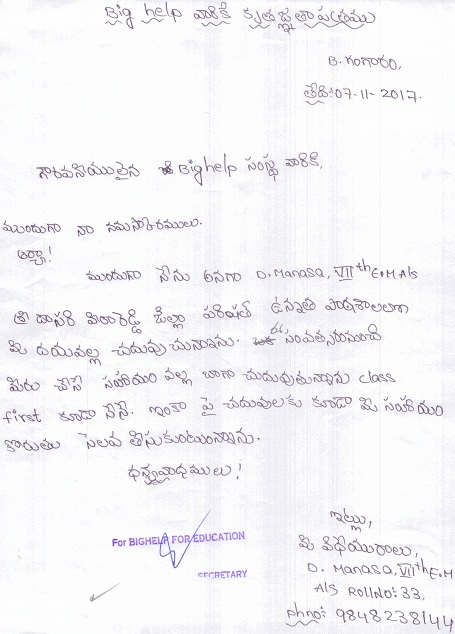 Big help వారికి కృతజ్ఞతాపత్రము
B. గంగారం,
తేది:07-11-2017.
గౌరవనీయులైన Bighelp సంస్థ వారికి,
ముందుగా నా నమస్కారములు.
అర్యా!
ముందుగా నేను అనగా D. Manasa, VIIth E.M A/s
శ్రీ దాసరి వీరారెడ్డి జిల్లా పరిషత్ ఉన్నత పాఠశాలలో
మీ దయవల్ల చదువుచున్నాను. సంవత్సరమునుంచి
మీరు చేసే సహాయం వల్ల బాగా చదువుతున్నాను class
first కూడా నేనే. ఇంకా పై చదువులకు కూడా మీ సహాయం
కోరుతు సెలవు తీసుకుంటున్నాను.
ధన్యవాధములు!
ఇట్లు,
మీ విధేయురాలు,
D. Manasa, VIIth E.M
A/s Roll No: 33.
Phno: 9848238144
For BIGHELP FOR EDUCATION
SECRETARY